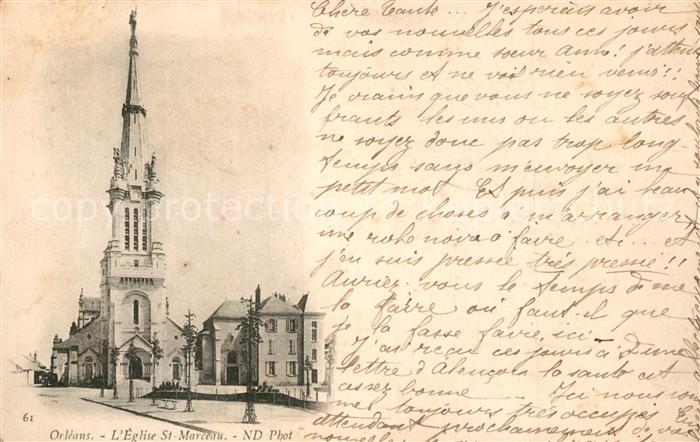 Chère Tante... J'espérais avoir
de vos nouvelles tous ces jours
mais comme sœur Anne! j'attends
toujours et ne vois rien venir!!
Je crains que vous ne soyez souf
frants les uns ou les autres
ne soyez donc pas trop long-
temps sans m'envoyer un
petit mot. Et puis j'ai beau
coup de choses à m'arranger
une robe noire à faire etc... et
j'en suis pressée très pressée!!
Auriez-vous le temps de me
la faire ou faut-il que
je la fasse faire ici
J'ai reçu ces jours-ci une
lettre d'Alençon la santé est
assez bonne
toujours très occupés
attendant prochainement de vos
nouvelles
61
Orléans. - L'Église St-Marceau. - ND Phot
copyright protection